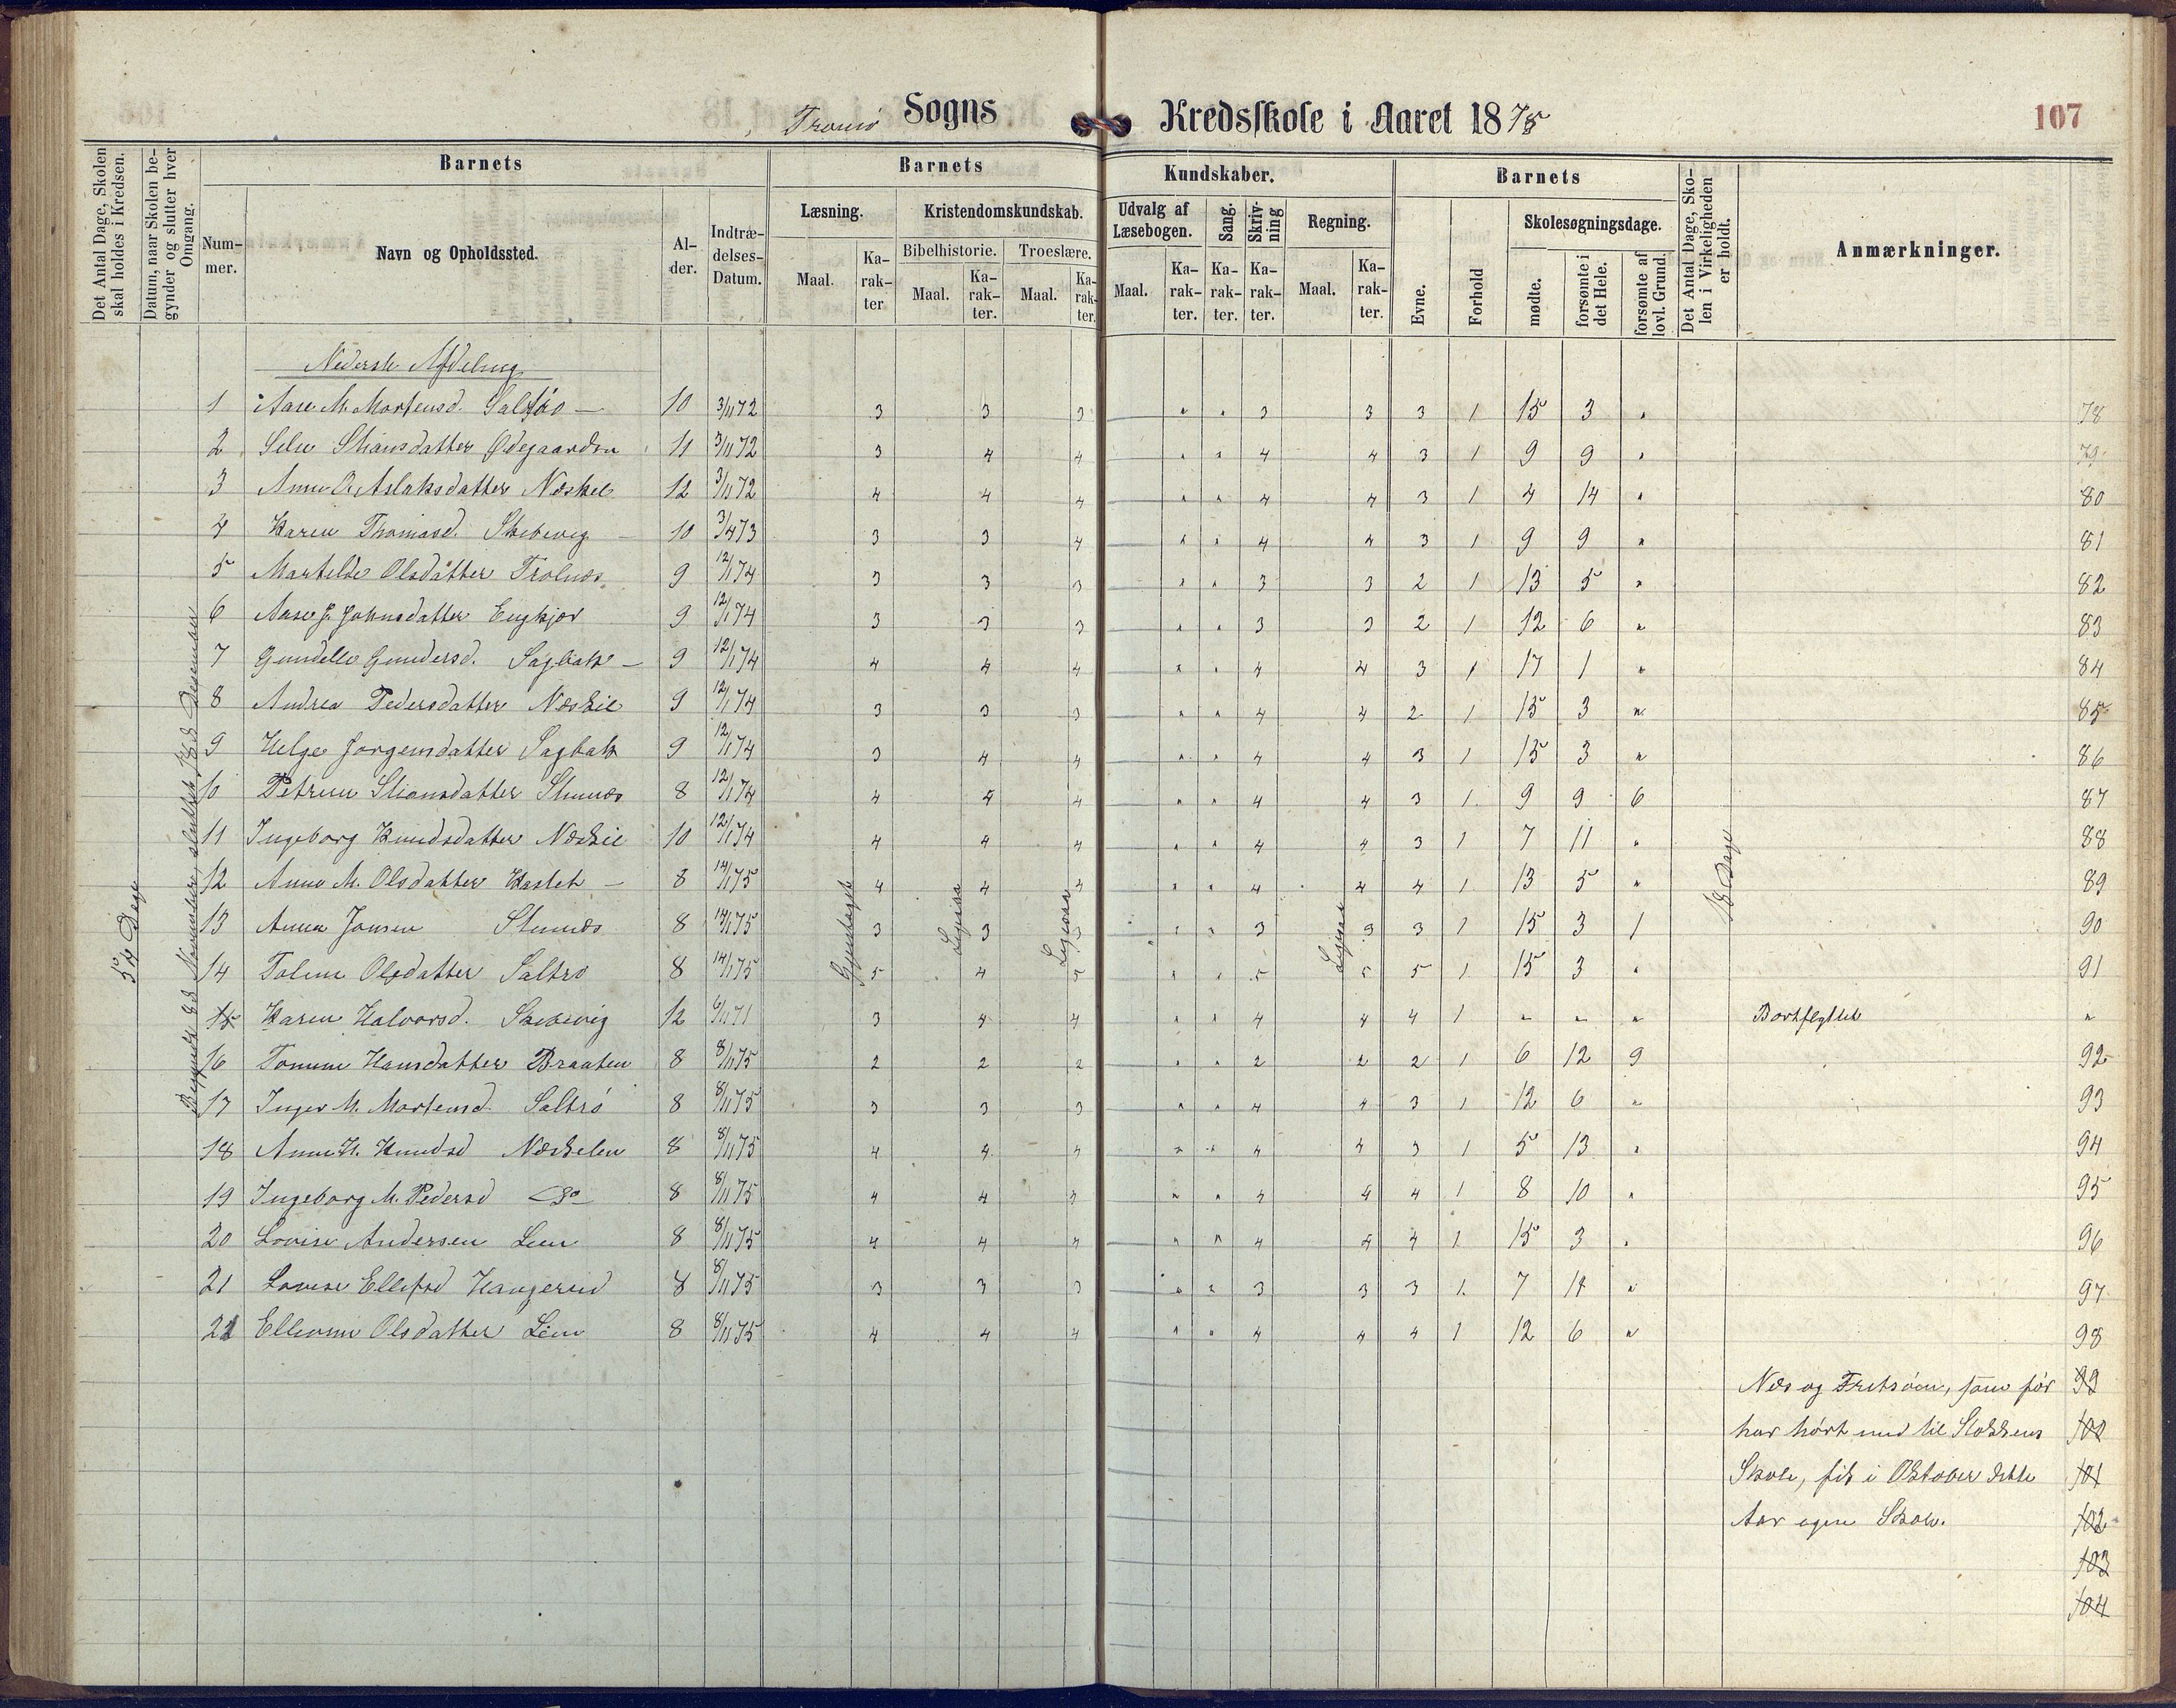 Tromø Sogns Kredsskole i Aaret 1875 107
Det Antal Dage, Skolen skal holdes i Kredsen.
Datum, naar Skolen begynder og slutter hver Omgang.
Barnets
Barnets Kundskaber.
Barnets
Nummer.
Navn og Opholdssted.
Alder.
Indtrædelses-Datum.
Læsning.
Maal.
Karakter
Kristendomskundskab.
Bibelhistorie.
Maal.
Karakter.
Troeslære.
Maal.
Karakter.
Udvalg af Læsebogen.
Maal.
Karakter.
Sang.
Karakter.
Skrivning
Karakter.
Regning.
Maal.
Karakter.
Evne.
Forhold
Skolesøgningsdage.
mødte.
forsømte i det Hele.
forsømte af lovl. Grund.
Det Antal Dage, Skolen i Virkeligheden er holdt.
Anmærkninger.
54 Dage
18 Dage
Nederste Afdeling
1 Aase M. Mortensd. Saltrø — 10 3/11 72 3 3 3 " " 3 3 3 1 15 3 " 78
2 Stiansdatter Ødegaarden 11 3/11 72 3 4 4 " " 4 4 3 1 9 9 " 79
3 Anne O. Aslaksdatter Næskil 12 3/11 72 4 4 4 " " 4 4 3 1 4 14 " 80
4 Karen Thomasd. Skibevig — 10 3/4 73 3 3 4 " " 4 4 3 1 9 9 " 81
5 Martilde Olsdatter Trolnæs 9 12/1 74 3 3 3 " " 3 3 2 1 13 5 " 82
6 Aase J. Johnsdatter Engkjær 9 12/1 74 3 3 3 " " 3 3 2 1 12 6 " 83
7 Gundelle Gundersd. Sagbak — 9 12/1 74 4 4 4 " " 4 4 3 1 17 1 " 84
8 Andrea Pedersdatter Næskil 9 12/1 74 3 3 3 " " 4 4 2 1 15 3 " 85
9 Helge Jørgensdatter Sagbak 9 12/1 74 3 4 4 " " 4 4 3 1 15 3 " 86
10 Petrine Stiansdatter Stunæs 8 12/1 74 4 4 4 " " 4 4 3 1 9 9 6 87
11 Ingeborg Knudsdatter Næskil 10 12/1 74 4 4 4 " " 4 4 3 1 7 11 " 88
12 Anne M. Olsdatter Haslet — 8 14/1 75 4 4 4 " " 4 4 4 1 13 5 " 89
13 Anna Jonsen Stunæs 8 14/1 75 3 3 3 " " 3 3 3 1 15 3 1 90
14 Taline Olsdatter Saltrø 8 14/1 75 5 4 5 " " 5 5 5 1 15 3 " 91
15 Karen Halvorsd. Skibevig 12 6/11 71 3 4 4 " " 4 4 4 1 " " " Bortflyttet "
16 Tomine Hansdatter Braaten 8 8/11 75 2 2 2 " " 2 2 2 1 6 12 9 92
17 Inger M. Mortensd. Saltrø 8 8/11 75 3 3 3 " " 4 4 3 1 12 6 " 93
18 Anne H. Knudsd Næskilen 8 8/11 75 4 4 4 " " 4 4 3 1 5 13 " 94
19 Ingeborg M. Pedersd do 8 8/11 75 4 4 4 " " 4 4 4 1 8 10 " 95
20 Lovise Andersen Lien 8 8/11 75 4 4 4 " " 4 4 4 1 15 3 " 96
21 Lovise Ellefsd Haugerud 8 8/11 75 3 3 3 " " 3 3 3 1 7 11 " 97
22 Olsdatter Lien 8 8/11 75 4 4 4 " " 4 4 4 1 12 6 " 98
Næs og Fretsøen, som før 99
har hørt med til Stokkens 100
Skole, fik i Oktober dette 101
Aar egen Skole. 102
103
104